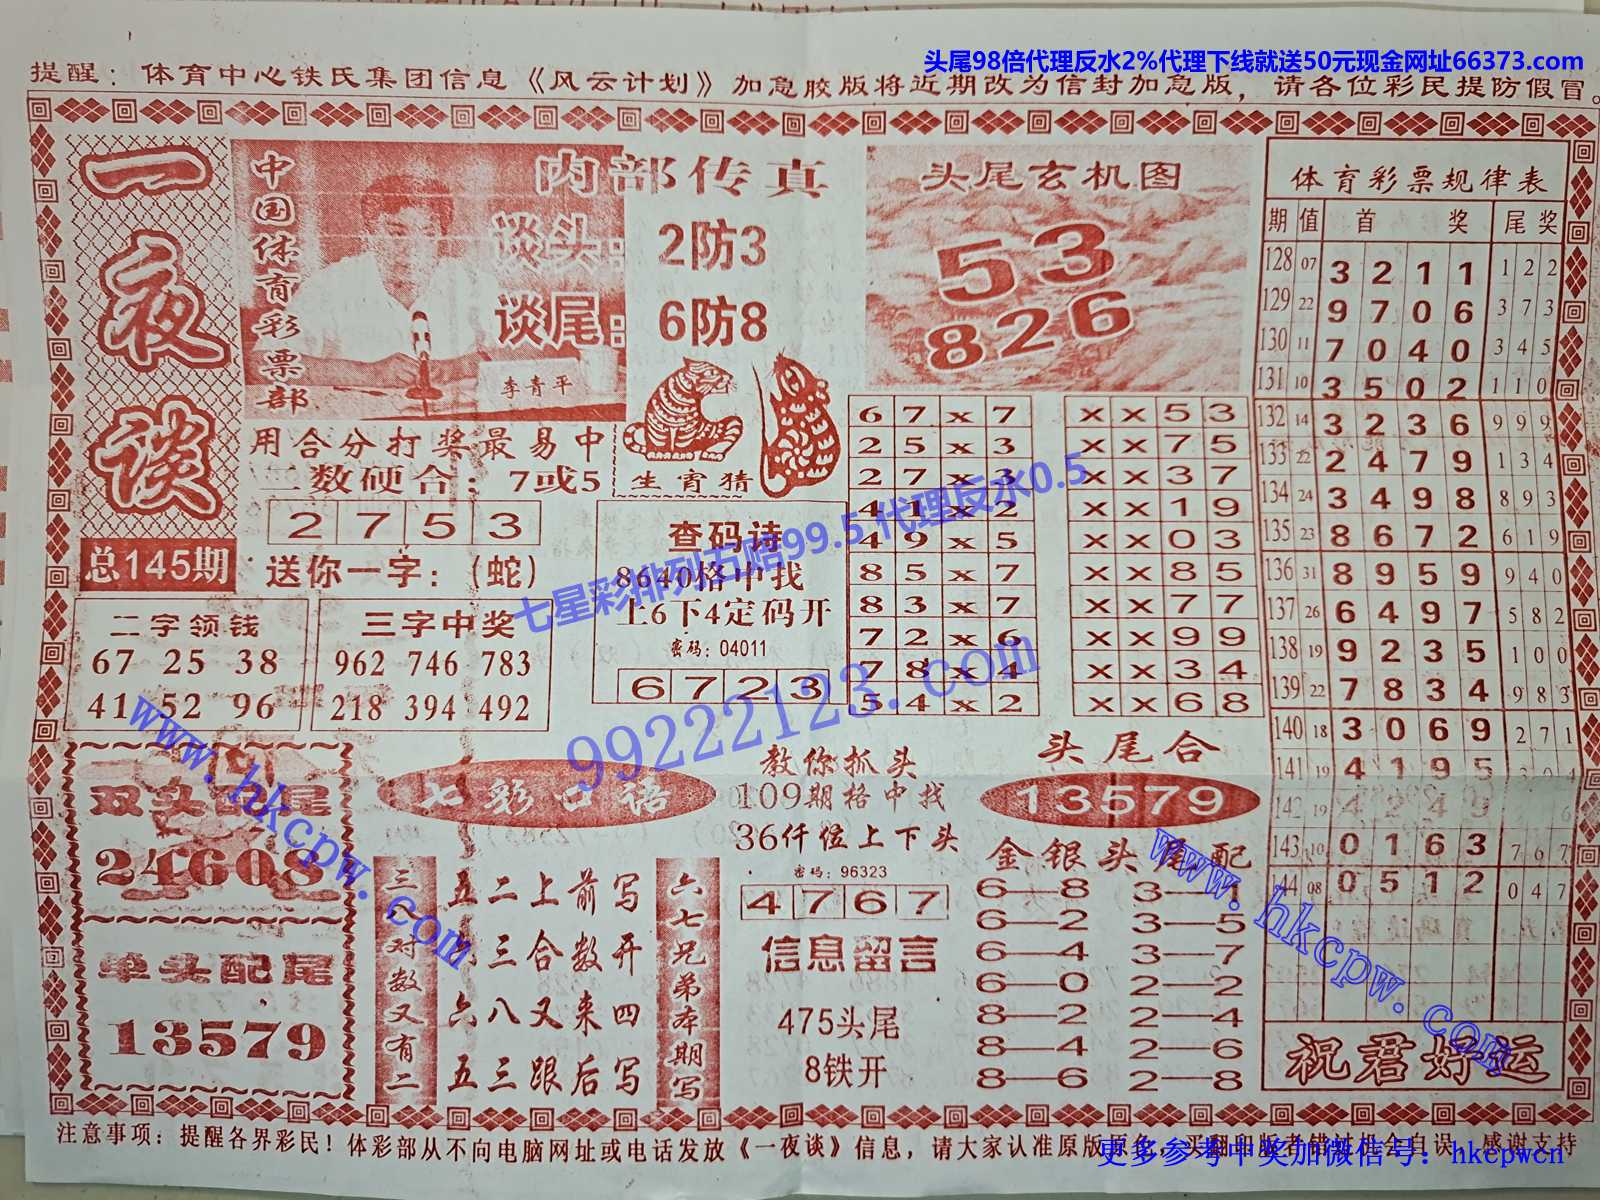 头尾98倍代理反水2%代理下线就送50元现金网址66373.com
提醒：体育中心铁氏集团信息《风云计划》加急胶版将近期改为信封加急版，请各位彩民提防假冒。
一夜谈
总145期
中国体育彩票部
内部传真
谈头：2防3
谈尾：6防8
李青平
用合分打奖最易中
二数硬合：7或5
2 7 5 3
送你一字：（蛇）
生宵猜
头尾玄机图
53
826
查码诗
8640格中找
上6下4定码开
密码：04011
6 7 2 3
二字领钱
67 25 38
41 52 96
三字中奖
962 746 783
218 394 492
6 7 x 7
2 5 x 3
2 7 x 3
4 1 x 2
4 9 x 5
8 5 x 7
8 3 x 7
7 2 x 6
7 8 x 4
5 4 x 2
x x 5 3
x x 7 5
x x 3 7
x x 1 9
x x 0 3
x x 8 5
x x 7 7
x x 9 9
x x 3 4
x x 6 8
体育彩票规律表
期 值 首 奖 尾 奖
128 07 3 2 1 1 1 2 2
129 22 9 7 0 6 3 7 3
130 11 7 0 4 0 3 4 5
131 10 3 5 0 2 1 1 0
132 14 3 2 3 6 9 9 9
133 22 2 4 7 9 1 3 4
134 24 3 4 9 8 8 9 3
135 23 8 6 7 2 6 1 9
136 31 8 9 5 9 9 4 0
137 26 6 4 9 7 5 8 2
138 19 9 2 3 5 1 0 0
139 22 7 8 3 4 9 8 3
140 18 3 0 6 9 2 7 1
141 19 4 1 9 5
142 19 4 2 4 9 6
143 10 0 1 6 3 7 6 7
144 08 0 5 1 2 0 4 7
祝君好运
双头 尾
24608
单头配尾
13579
七彩口语
三八对数又有二
五二上前写
三合数开
六八又来四
五三跟后写
六七兄弟本期写
教你抓头
109期格中找
36仟位上下头
密码：96323
4 7 6 7
信息留言
475头尾
8铁开
头尾合
13579
金银头尾配
6—8 3—1
6—2 3—5
6—4 3—7
6—0 2—2
8—2 2—4
8—4 2—6
8—6 2—8
七星彩排列五赔99.5 代理反水0.5
99222123.com
www.hkcpw.com
www.hkcpw.com
注意事项：提醒各界彩民！体彩部从不向电脑网址或电话发放《一夜谈》信息，请大家认准原版原色，买翻印版者错过机会自误，感谢支持
更多参考中奖加微信号：hkcpwcn